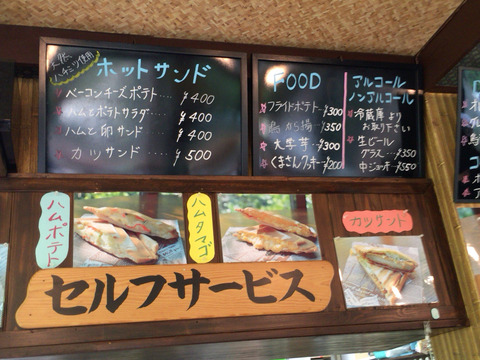 天然
ハチミツ使用
ホットサンド
ベーコンチーズポテト ‥ ¥400
ハムとポテトサラダ ‥‥ ¥400
ハムと卵サンド ‥‥ ¥400
カツサンド ‥‥ ¥500
FOOD
フライドポテト ‥ ¥300
鳥から揚 ‥‥ ¥350
大学芋 ‥‥ ¥300
くまざしクッキー ‥ ¥200
アルコール
ノンアルコール
冷蔵庫より
お取り下さい
生ビール
グラス ‥ ¥350
中ジョッキ ‥ ¥550
ハムポテト
ハムタマゴ
カツサンド
セルフサービス